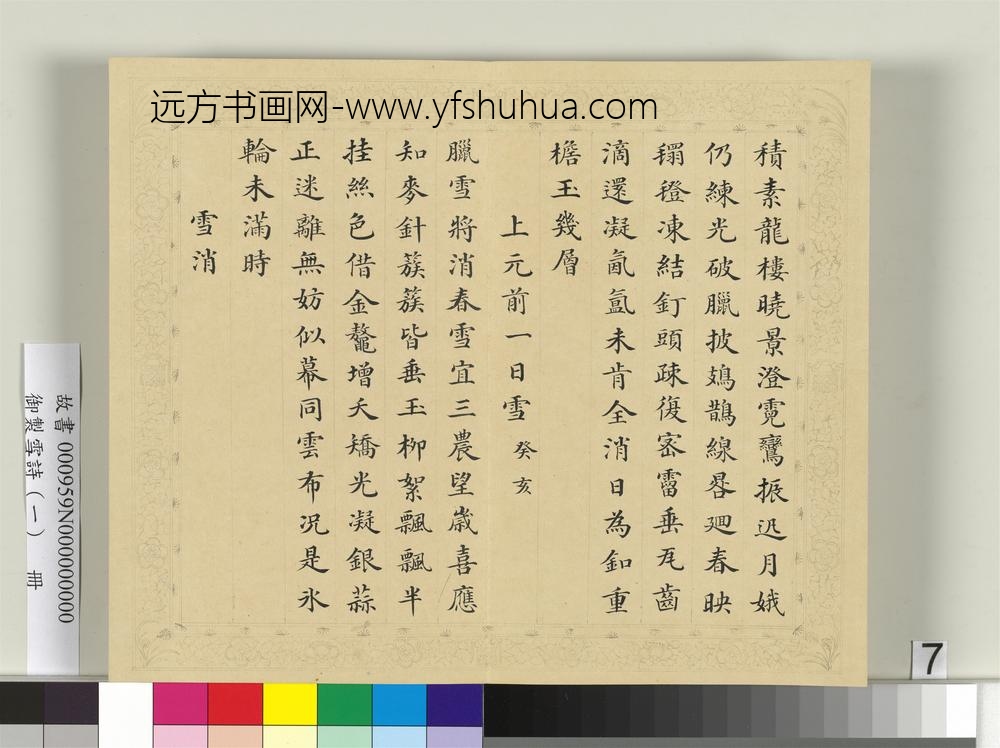 远方书画网-www.yfshuhua.com
積素龍樓曉景澄霓鸞振迅月娥
仍練光破臘披鳷鵲線晷廻春映
磴凍結釘頭疎復宻霤垂瓦齒
滴還凝氤氳未肯全消日為釦重
檐玉幾層
上元前一日雪 癸亥
臘雪將消春雪宜三農望歲喜應
知麥針簇簇皆垂玉柳絮飄飄半
挂絲色借金鼇增夭矯光凝銀蒜
正迷離無妨似幕同雲布况是氷
輪未滿時
雪消
故書 000959N000000000
御製雪詩（一） 冊
7